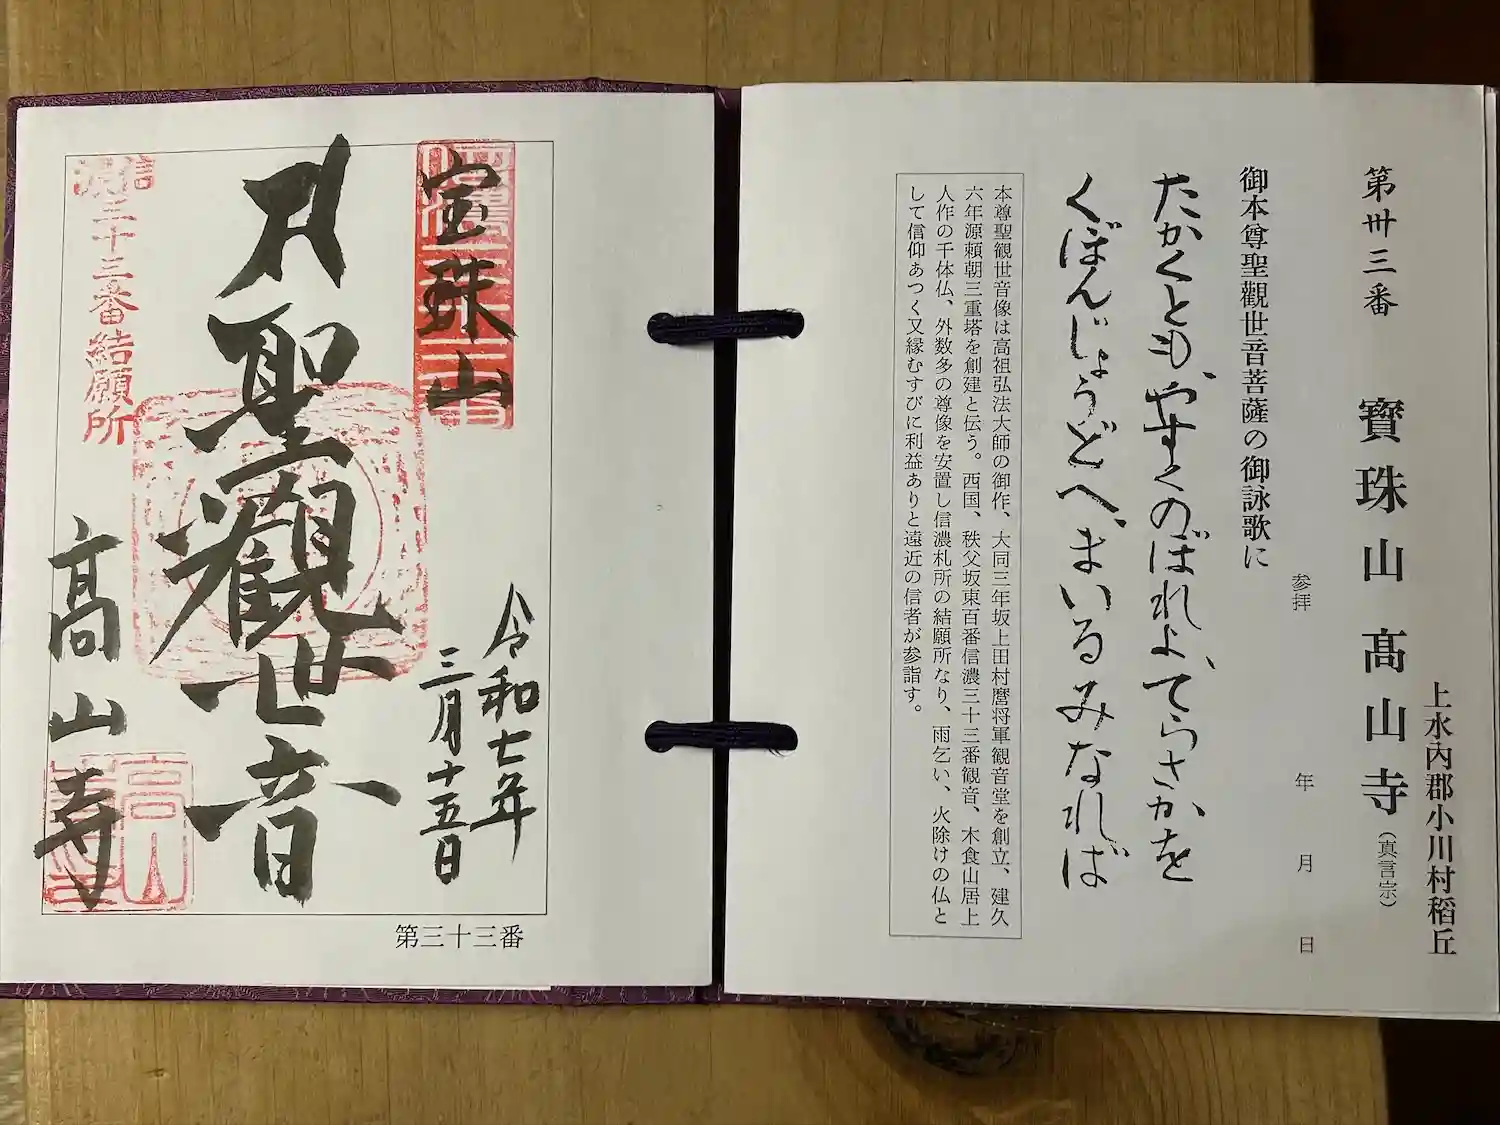 上水内郡小川村稲丘
第卅三番 寳珠山髙山寺(真言宗)
参拝 年 月 日
御本尊聖觀世音菩薩の御詠歌に
たかくとも、やすくのぼれよ、てらさかを
くぼんじょうどへ、まいるみなれば
本尊聖観世音像は高祖弘法大師の御作、大同三年坂上田村麿将軍観音堂を創立、建久
六年源頼朝三重塔を創建と伝う。西国、秩父坂東百番信濃三十三番観音、木食山居上
人作の千体仏、外数多の尊像を安置し信濃札所の結願所なり、雨乞い、火除けの仏と
して信仰あつく又縁むすびに利益ありと遠近の信者が参詣す。
宝珠山
令和七年
三月十五日
聖觀世音
信濃三十三番結願所
髙山寺
第三十三番